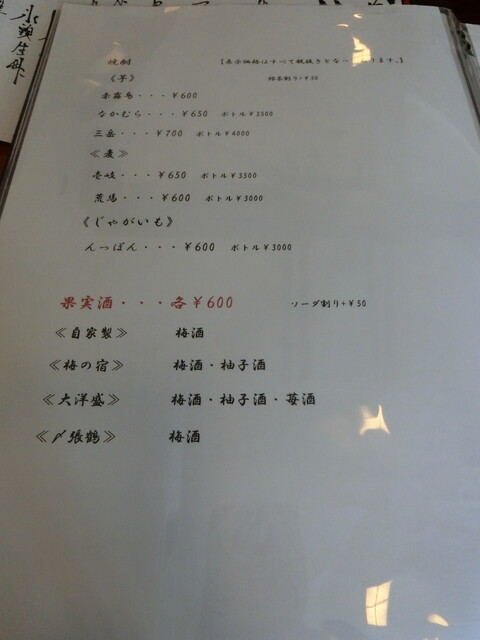 氷頭生酢
焼酎 【表示価格はすべて税抜きとな ります。】
《芋》 緑茶割り+¥50
赤霧島・・・¥600
なかむら・・・¥650 ボトル¥3500
三岳・・・¥700 ボトル¥4000
≪麦≫
壱岐・・・¥650 ボトル¥3500
荒馬・・・¥600 ボトル¥3000
《じゃがいも》
んっぱん・・・¥600 ボトル¥3000
果実酒・・・各¥600 ソーダ割り+¥50
≪自家製≫ 梅酒
≪梅の宿≫ 梅酒・柚子酒
≪大洋盛≫ 梅酒・柚子酒・苺酒
≪〆張鶴≫ 梅酒